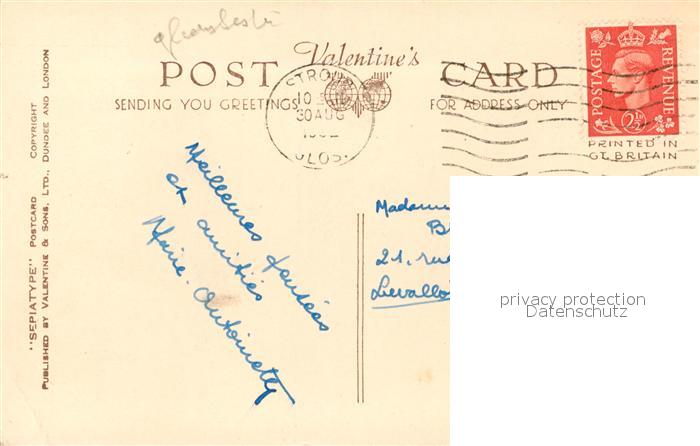 Valentine's
POST CARD
SENDING YOU GREETINGS
FOR ADDRESS ONLY
STROUD
30 AUG
GLOS.
POSTAGE
REVENUE
2½D
PRINTED IN
GT. BRITAIN
"SEPIATYPE" POSTCARD COPYRIGHT
PUBLISHED BY VALENTINE & SONS, LTD., DUNDEE AND LONDON
Meilleures pensées
et amitiés
Marie-Antoinette
Madame
B
21, rue
Levallois
privacy protection
Datenschutz